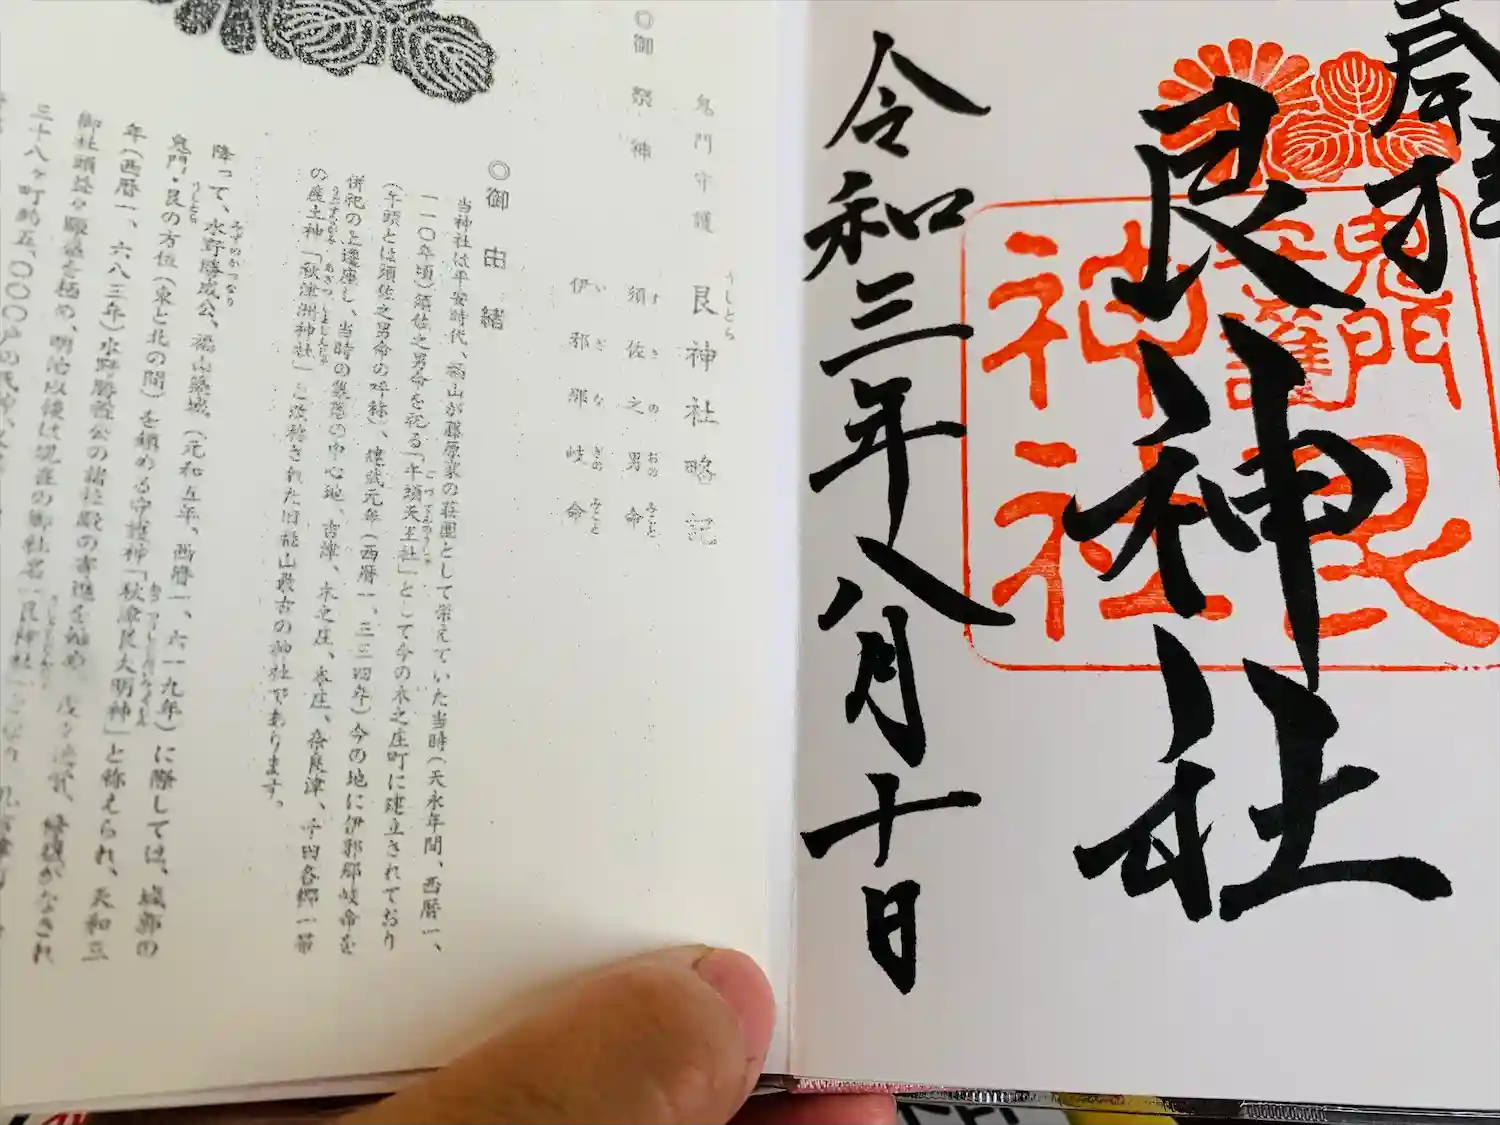 奉拝
鬼門守護
艮
神社
艮神社
令和三年八月十日
鬼門守護
艮神社略記
うしとら
◎御祭神
須佐之男命
すさのおのみこと
伊邪那岐命
いざなぎのみこと
◎御由緒
当神社は平安時代、福山が藤原家の荘園として栄えていた当時(天永年間、西暦一、
一一〇年頃)須佐之男命を祀る「牛頭天王社」として今の木之庄町に建立されており
(牛頭とは須佐之男命の呼称)、建武元年(西暦一、三三四年)今の地に伊邪那岐命を
併祀の上遷座し、当時の集落の中心地、吉津、木之庄、本庄、奈良津、千田各郷一帯
の産土神「秋津洲神社」と崇称された旧福山最古の神社であります。
降って、水野勝成公、福山築城、(元和五年、西暦一、六一九年)に際しては、城郭の
みずのかつなり
鬼門・艮の方位(東と北の間)を鎮める守護神「秋津艮大明神」と称えられ、天和三
うしとら
年(西暦一、六八三年)水野勝種公の諸社殿の寄進を始め
御社頭益々殿盛を極め、明治以後は現在の御社名「艮神社」
三十八ヶ町約五、〇〇〇戸の氏神